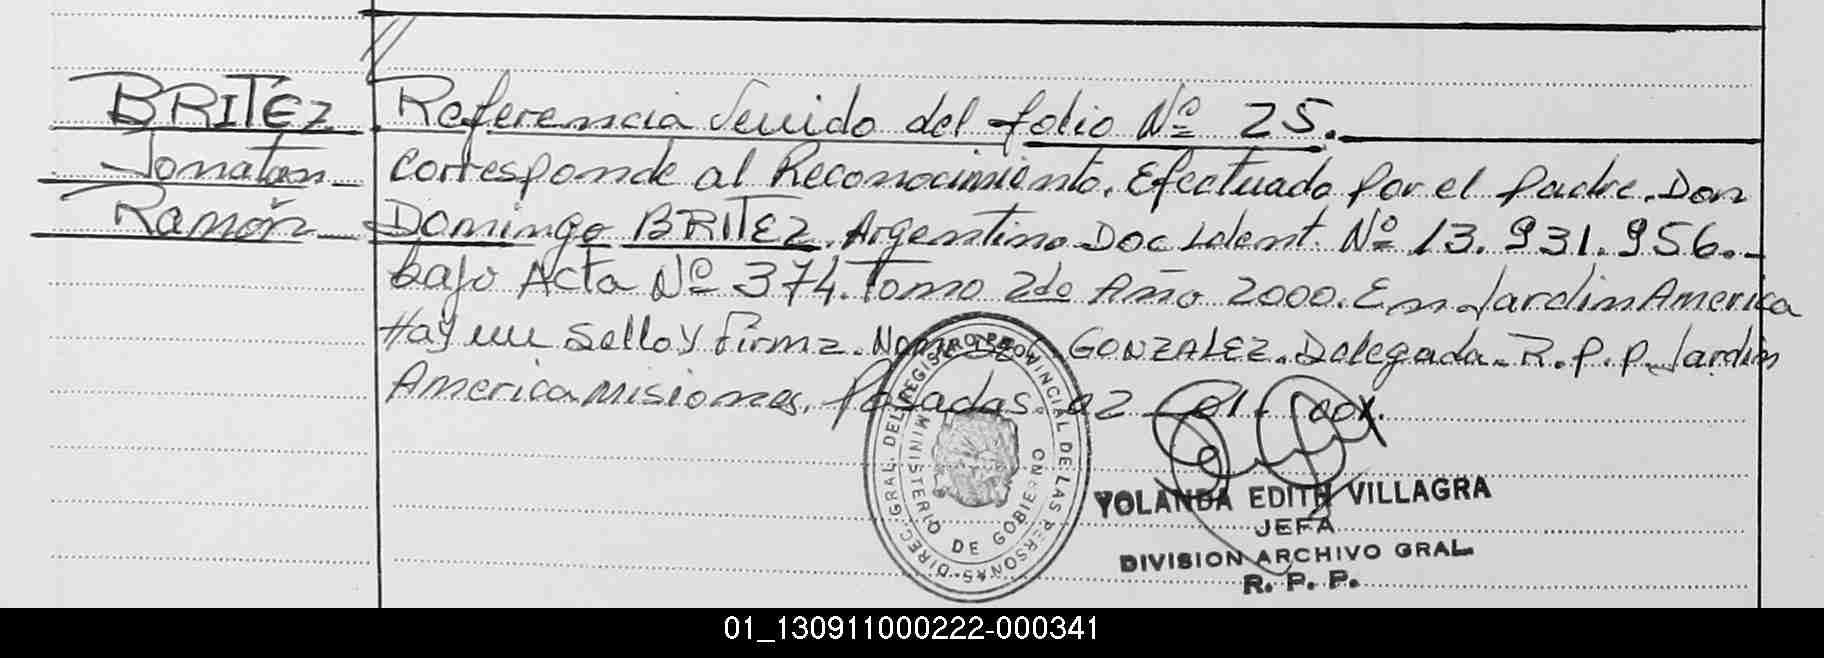 BRITEZ
Jonatan
Ramón
Referencia Venido del folio Nº 25.
corresponde al Reconocimiento. Efectuado por el padre. Don
Domingo BRITEZ. Argentino Doc Ident. Nº 13.931.956.-
bajo Acta Nº 374. Tomo 2do Año 2000. En Jardin America
Hay un sello y firma. GONZALEZ. Delegada. R.P.P. Jardin
America Misiones. Posadas 02
DIREC. GRAL. DEL REGISTRO PROVINCIAL DE LAS PERSONAS
MINISTERIO DE GOBIERNO
YOLANDA EDITH VILLAGRA
JEFA
DIVISION ARCHIVO GRAL.
R. P. P.
01_130911000222-000341